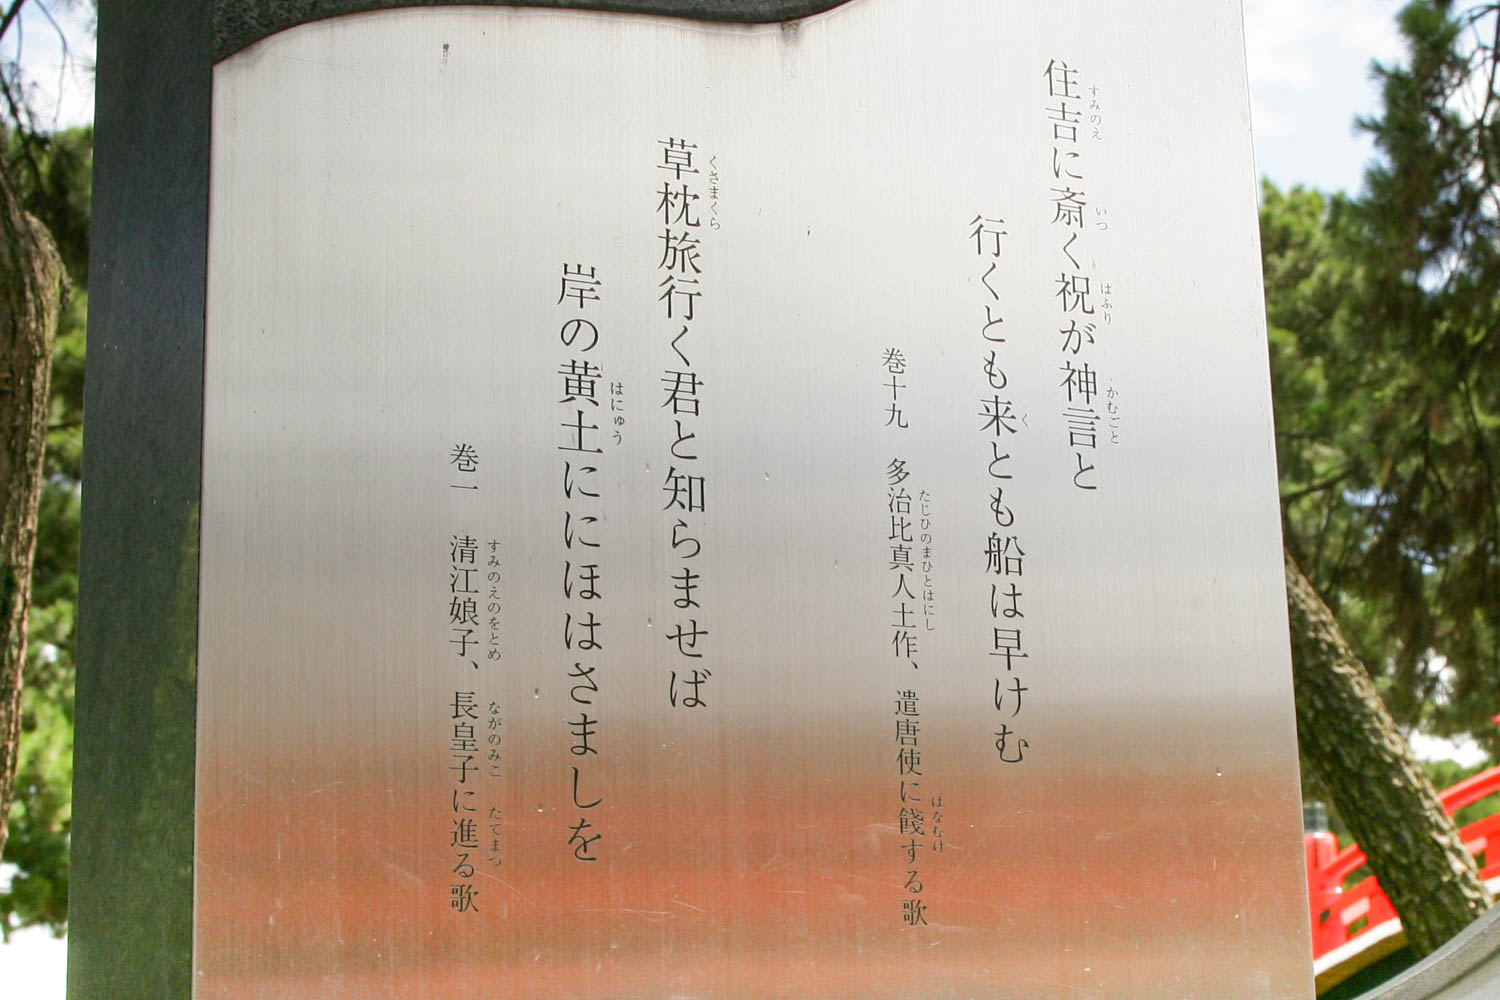 住吉に斎く祝が神言と
すみのえ いつ はふり かむごと
行くとも来とも船は早けむ
く
巻十九　多治比真人土作、遣唐使に餞する歌
たじひのまひとはにし はなむけ
草枕旅行く君と知らませば
くさまくら
岸の黄土ににほはさましを
はにゅう
巻一　清江娘子、長皇子に進る歌
すみのえのをとめ ながのみこ たてまつ